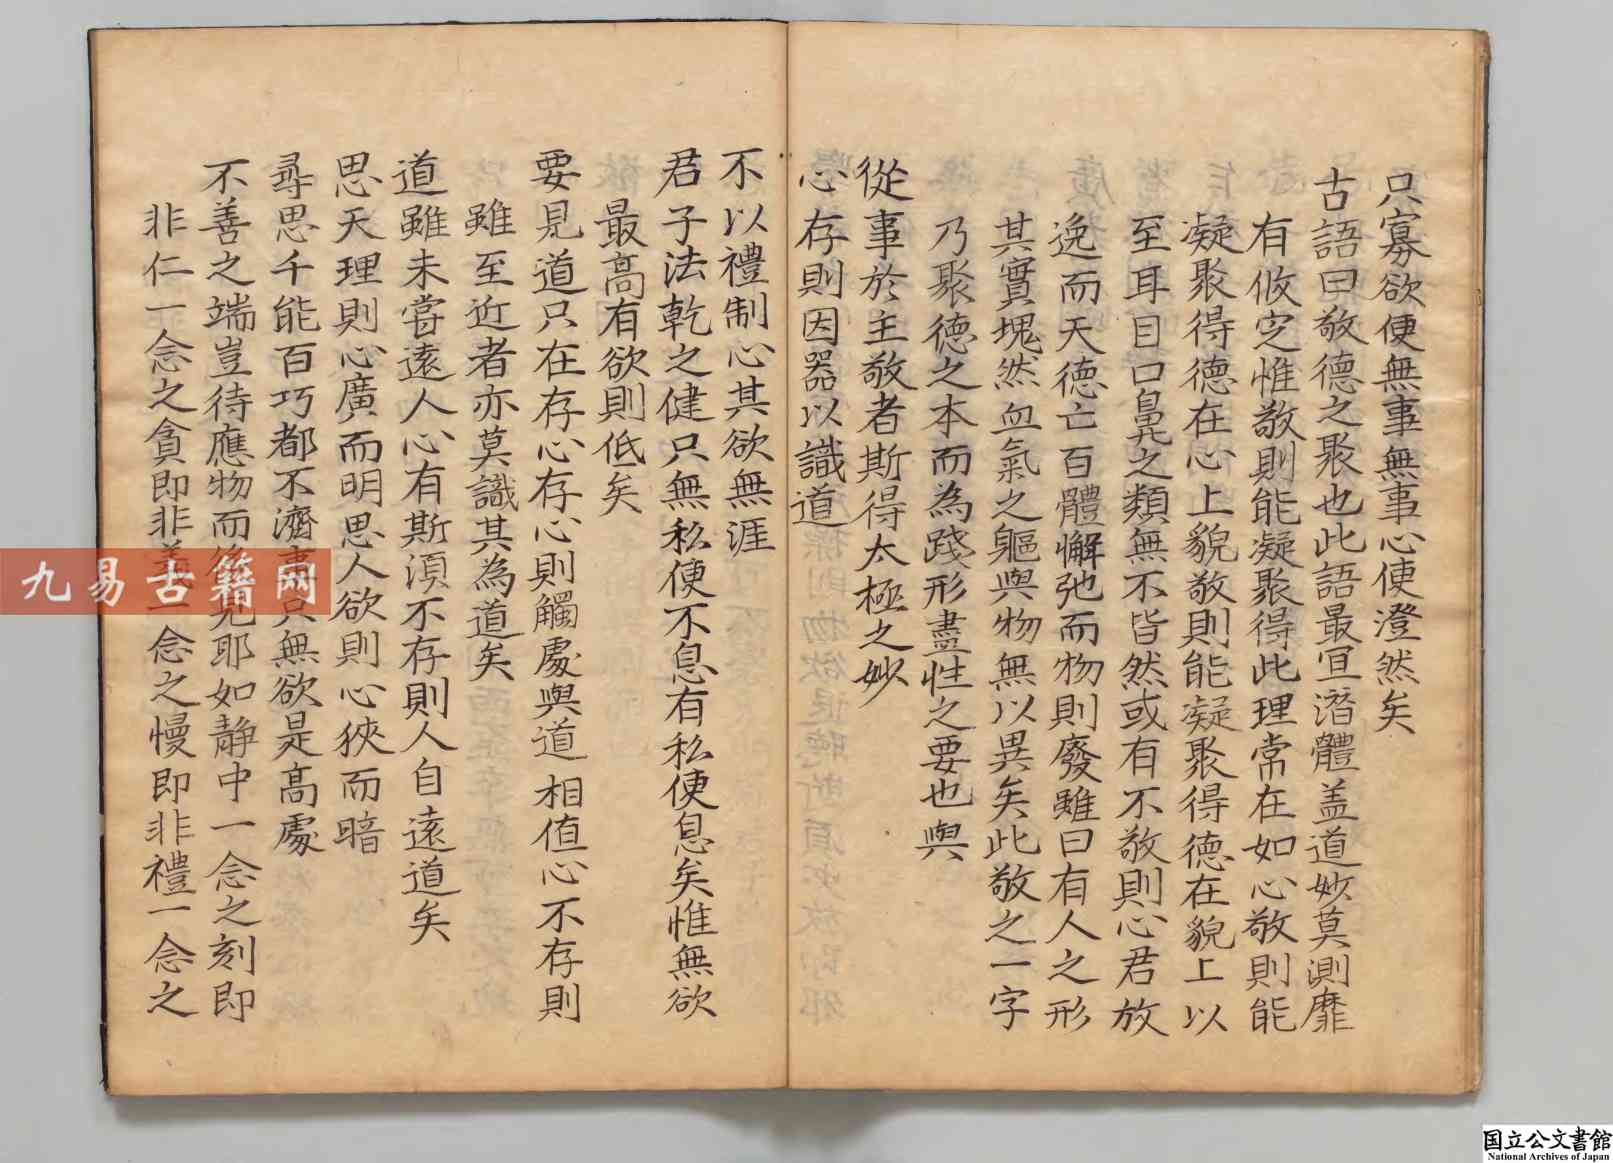 只寡欲便無事無事心便澄然矣
古語曰敬德之聚也此語最冝潛體盖道妙莫測靡
有攸定惟敬則能凝聚得此理常在如心敬則能
凝聚得德在心上貌敬則能凝聚得德在貌上以
至耳目口鼻之類無不皆然或有不敬則心君放
逸而天德亡百體懈弛而物則廢雖曰有人之形
其實塊然血氣之軀與物無以異矣此敬之一字
乃聚德之本而為踐形盡性之要也與
從事於主敬者斯得太極之妙
心存則因器以識道
不以禮制心其欲無涯
君子法乾之健只無私便不息有私便息矣惟無欲
最高有欲則低矣
要見道只在存心存心則觸處與道相值心不存則
雖至近者亦莫識其為道矣
道雖未嘗遠人心有斯湏不存則人自遠道矣
思天理則心廣而明思人欲則心狹而暗
尋思千能百巧都不濟事只無欲是高處
不善之端豈待應物而後見耶如静中一念之刻即
非仁一念之貪即非義一念之慢即非禮一念之
九易古籍网
国立公文書館
National Archives of Japan